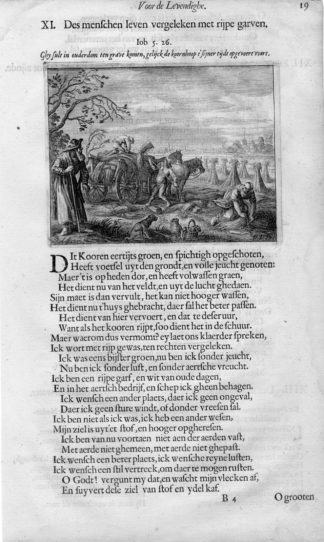 Voor de Levendighe. 19
XI. Des menschen leven vergeleken met rijpe garven.
Iob 5. 26.
Ghy sult in ouderdom ten grave komen, gelijck de koornhoop t'sijner tijdt opgevoert wort.
DIt Kooren eertijts groen, en spichtigh opgeschoten,
Heeft voetsel uyt den grondt, en volle jeucht genoten:
Maer 't is op heden dor, en heeft volwassen graen,
Het dient nu van het veldt, en uyt de lucht ghedaen.
Sijn maet is dan vervult, het kan niet hooger wassen,
Het dient nu t'huys ghebracht, daer sal het beter passen.
Het dient van hier vervoert, en dat te deser uur,
Want als het kooren rijpt, soo dient het in de schuur.
Maer warom dus vermomt? ey laet ons klaerder spreken,
Ick wort met rijp gewas, ten rechten vergeleken.
Ick was eens bijster groen, nu ben ick sonder jeucht,
Nu ben ick sonder lust, en sonder aersche vreucht.
Ick ben een rijpe garf, en wit van oude dagen,
En in het aertsch bedrijf, en schep ick gheen behagen.
Ick wensch een ander plaets, daer ick geen ongeval,
Daer ick geen sture windt, of donder vreesen sal.
Ick ben niet als ick was, ick heb een ander wesen,
Mijn ziel is uyt et stof, en hooger opgheresen.
Ick ben van nu voortaen niet aen der aerden vast,
Met aerde niet ghemeen, met aerde niet ghepast.
Ick wensch een beter plaets, ick wensche reyne lusten,
Ick wensch een stil vertreck, om daer te mogen rusten.
O Godt! vergunt my dat, en wascht mijn vlecken af,
En suyvert dese ziel van stof en ydel kaf.
B 4 O grooten